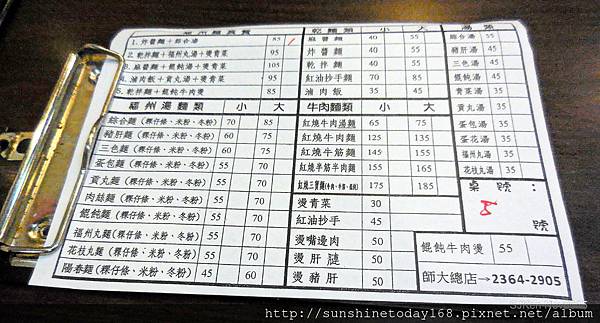 1. 炸醬麵+綜合湯 85
2. 乾拌麵+福州丸湯+燙青菜 95
3. 麻醬麵+餛飩湯+燙青菜 105
4. 滷肉飯+貢丸湯+燙青菜 95
5. 乾拌麵+餛飩牛肉燙 85
福州湯麵類 小 大
綜合麵(粿仔條、米粉、冬粉) 70 85
豬肝麵(粿仔條、米粉、冬粉) 60 75
三色麵(粿仔條、米粉、冬粉) 60 75
蛋包麵(粿仔條、米粉、冬粉) 55 70
貢丸麵(粿仔條、米粉、冬粉) 55 70
肉絲麵(粿仔條、米粉、冬粉) 55 70
餛飩麵(粿仔條、米粉、冬粉) 55 70
福州丸麵(粿仔條、米粉、冬粉) 55 70
花枝丸麵(粿仔條、米粉、冬粉) 55 70
陽春麵(粿仔條、米粉、冬粉) 45 60
乾麵類 小 大
麻醬麵 40 55
炸醬麵 40 55
乾拌麵 40 55
紅油抄手麵 70 85
滷肉飯 35 45
牛肉麵類 小 大
紅燒牛肉湯麵 65 75
紅燒牛肉麵 125 135
紅燒牛筋麵 145 155
紅燒半筋半肉麵 155 165
紅燒三寶麵 175 185
燙青菜 30
紅油抄手 45
燙嘴邊肉 50
燙肝腱 50
燙豬肝 50
湯類
綜合湯 55
豬肝湯 45
三色湯 45
餛飩湯 45
青菜湯 35
貢丸湯 35
蛋包湯 35
蛋花湯 35
福州丸湯 35
花枝丸湯 35
桌號:
8
號
餛飩牛肉燙 55
師大總店→2364-2905
http://sunshinetoday168.pixnet.net/album